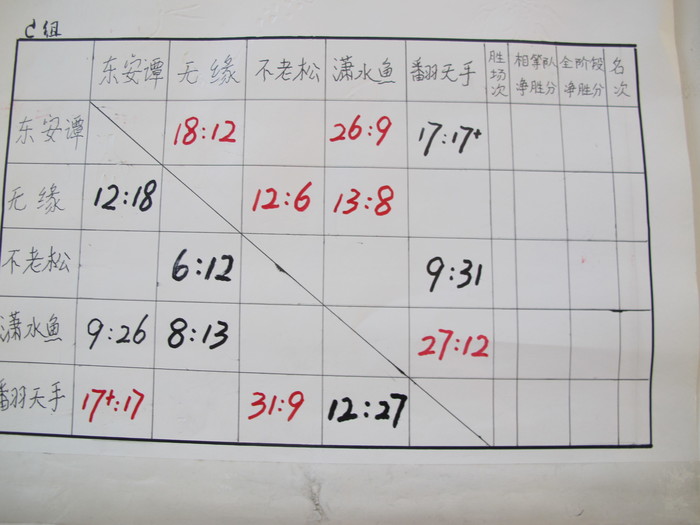 C组
东安谭 无缘 不老松 潇水鱼 翻羽天手 胜场次 相等队净胜分 全阶段净胜分 名次
东安谭 18:12 26:9 17:17+
无缘 12:18 12:6 13:8
不老松 6:12 9:31
潇水鱼 9:26 8:13 27:12
翻羽天手 17+:17 31:9 12:27